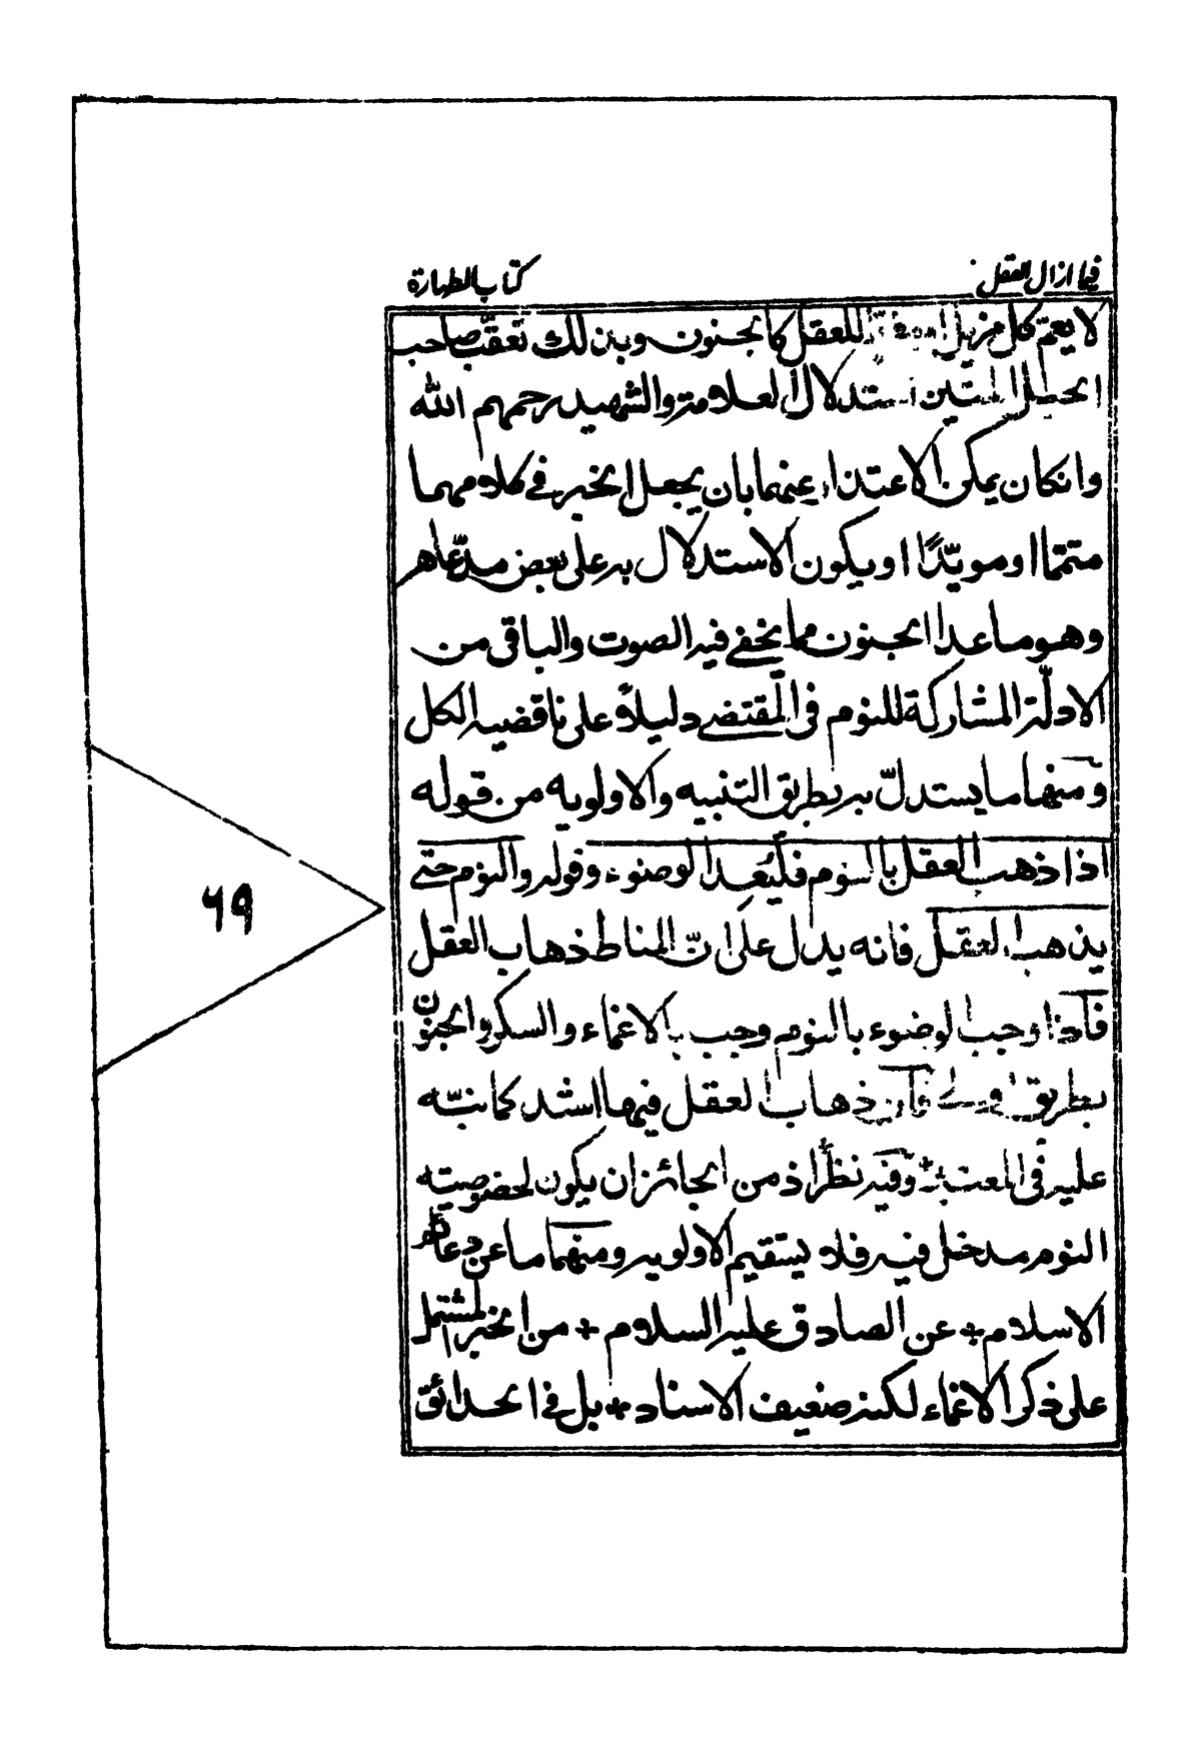 فيما ازال العقل
كتاب الطهارة
لا يعم كل مزيل للعقل كالجنون وبذلك تعقب صاحب
الحبل المتين استدلال العلامة والشهيد رحمهم الله
وانكان يمكن الاعتذار عنهما بان يجعل الخبر في كلامهما
متمما او مويّدًا او يكون الاستدلال به على بعض مدّعاهم
وهو ما عدا الجنون مما يخفى فيه الصوت والباقى من
الادلّة المشاركة للنوم فى المقتضى دليلاً على ناقضيه الكل
ومنها ما يستدلّ به بطريق التنبيه والاولويه من قوله
اذا ذهب العقل بالنوم فليُعِد الوضوء وقوله والنوم حتى
يذهب العقل فانه يدل على انّ المناط ذهاب العقل
فاذا وجب الوضوء بالنوم وجب بالاغماء والسكر والجنون
بطريق فان ذهاب العقل فيها اشد كما نبّه
عليه فى المعتبر وفيه نظر اذ من الجائز ان يكون لخصوصيته
النوم مدخل فيه فلا يستقيم الاولويه ومنها ما عن دعائم
الاسلام + عن الصادق عليه السلام + من الخبر المشتمل
على ذكر الاغماء لكنه ضعيف الاسناد + بل في الحدائق
٦٩